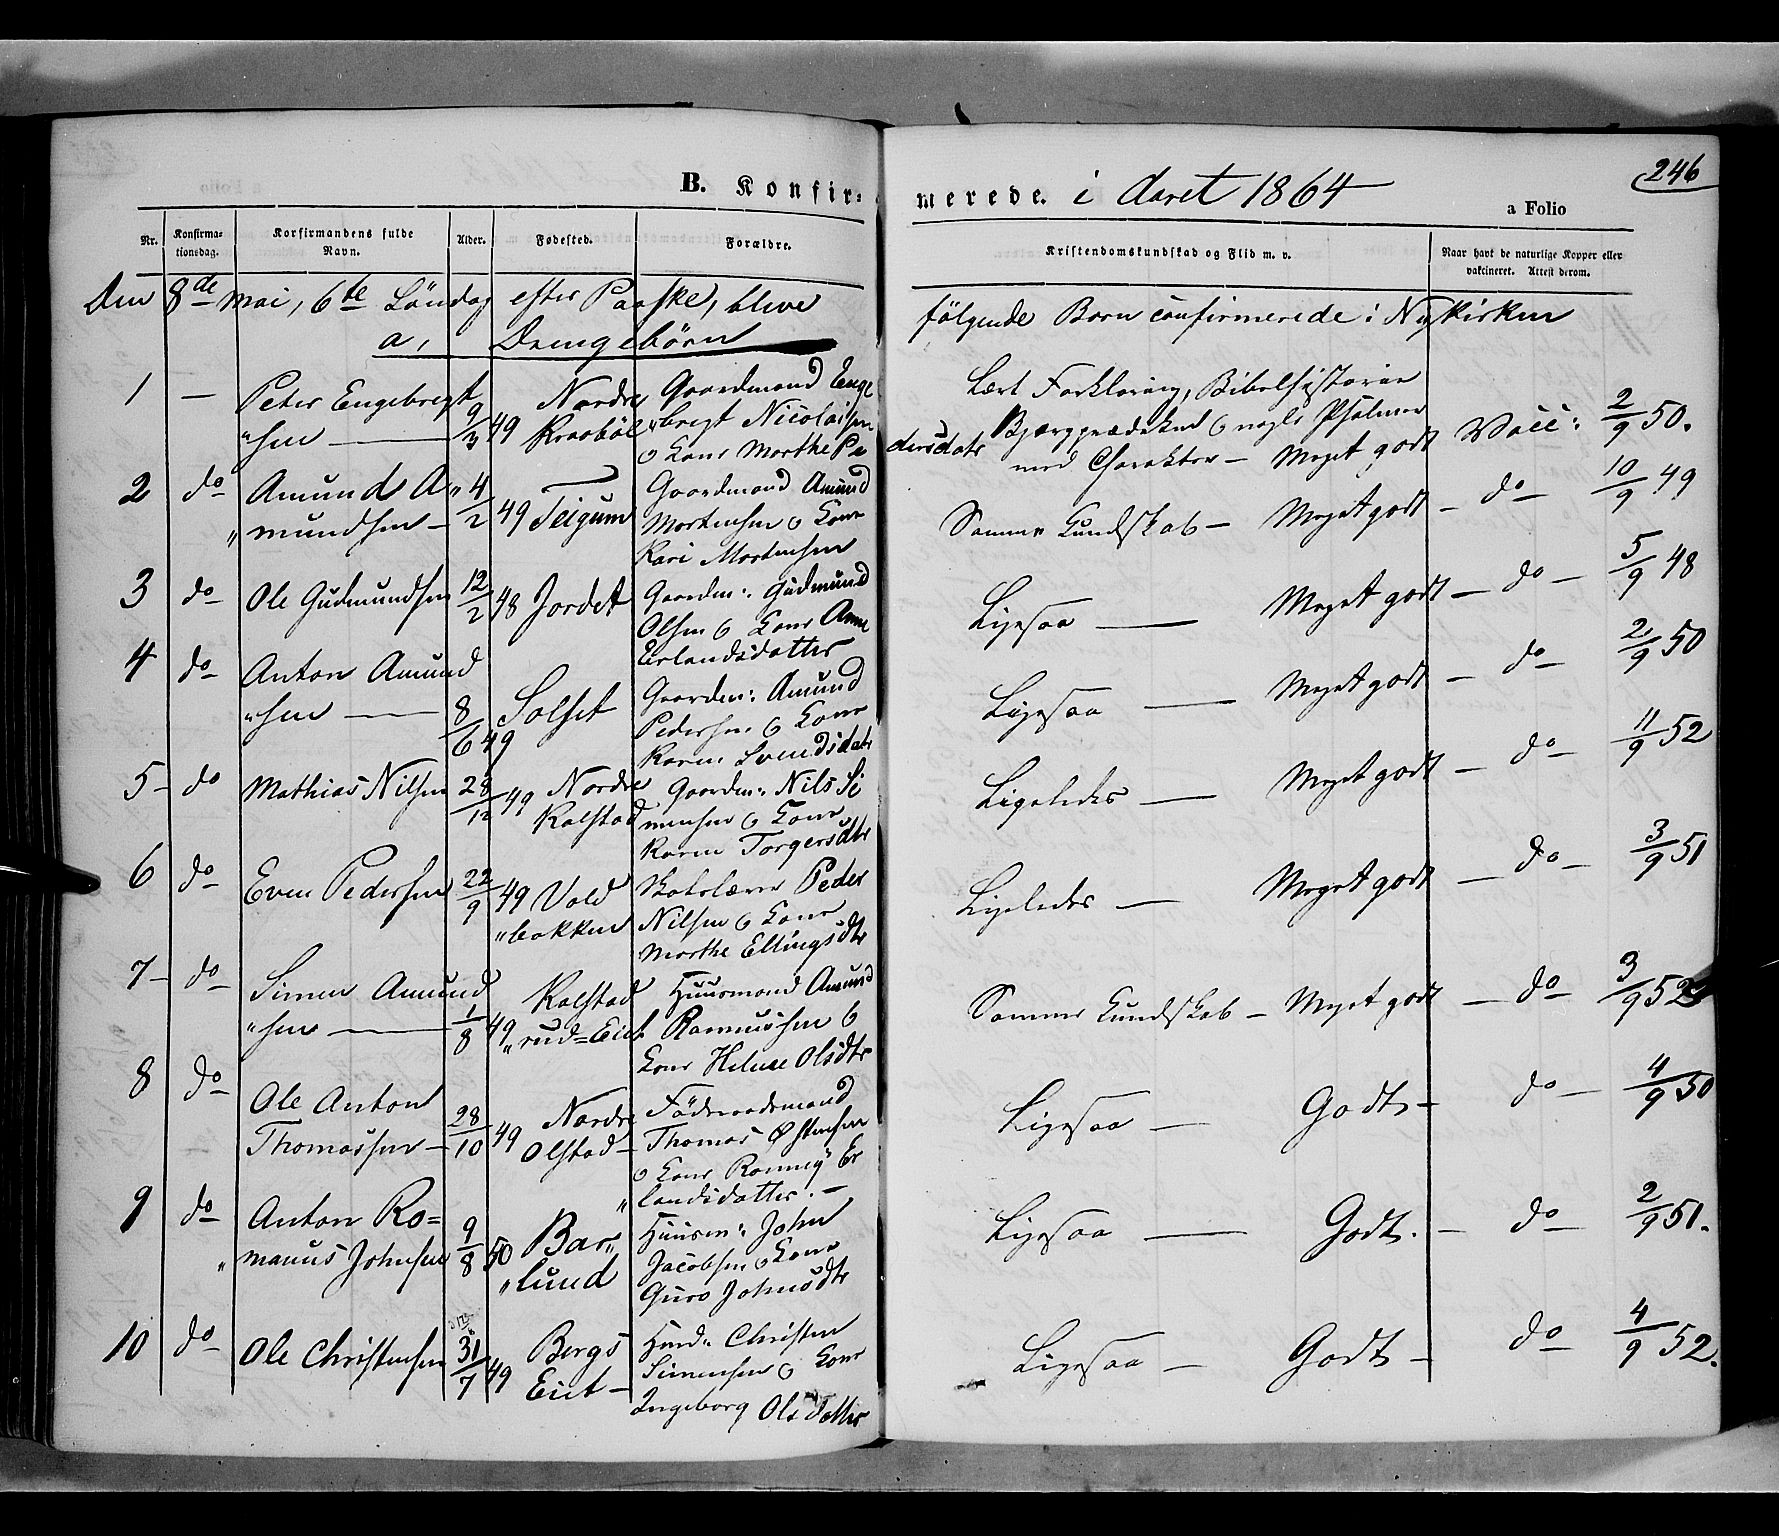 246
B. Konfir= merede. i Aaret 1864
a Folio
Nr. Konfirma- tionsdag. Korfirmandens fulde Navn. Alder. Fødested. Forældre. Kristendomskundskab og Flid m. v. Naar havt de naturlige Kopper eller vaktineret. Attest derom.
Den 8de Mai, 6te Söndag efter Paaske, bleve følgende Børn confirmerede i Nykirken
a, Drengebörn
1 — Peter Engebregt 9/3 49 Nordre Gaardmand Enge Lært Forklaring, Bibelhistorien
"sen — Kraabøl "bregt Nicolaisen Bjergprædiken o nogle Psalmer Vacc: 2/9 50.
o Kone Marthe Pe dersdatr med Charakter — Meget godt
2 do Amund A" 4/2 49 Teigum Gaardmand Amund Samme Kundskab — Meget godt — do — 10/9 49
"mundsen — Mortensen o Kone
Kari Mortensen
3 do Ole Gudmundsen 12/2 48 Jordet Gaardm: Gudmund Ligesaa — Meget godt — do — 5/9 48
Olsen o Kone Anne
Erlandsdatter
4 do Anton Amund Gaardm: Amund Ligesaa — Meget godt — do — 2/9 50
"sen — 8/6 49 Solset Pedersen o Kone
Karen Svendsdatr
5 — do Mathias Nilsen 28/12 49 Nordre Gaardm: Nils Si Ligeledes — Meget godt — do — 11/9 52
Kalstad mensen o Kone
Karen Torgersdtr
6 do Even Pedersen 22/9 49 Vold Skolelærer Peder Ligeledes — Meget godt — do — 3/9 51
"bakken Nilsen o Kone
Marthe Ellingsdtr
7 — do Simen Amund Kalstad Huusmand Amund Samme Kundskab — Meget godt — do — 3/9 52
"sen — 1/8 49 "rud=Eiet Rasmussen o
Kone Helene Olsdtr
8 do Ole Anton 28/10 49 Nordre Föderaadsmand Ligesaa — Godt — do — 4/9 50
Thomassen — Olstad — Thomas Østensen
o Kone Ronney Er
"landsdatter. —
9 do Anton Ro= 9/8 50 Bar" Huusm: John Ligesaa — Godt. — do — 2/9 51.
"manus Johnsen "lund Jacobsen o Kone
Guro Johnsdtr
10 do Ole Christensen 31/7 49 Bergs Husm: Christen Ligesaa — Godt — do — 4/9 52.
Eiet — Simensen o Kone
Ingeborg Olsdatter